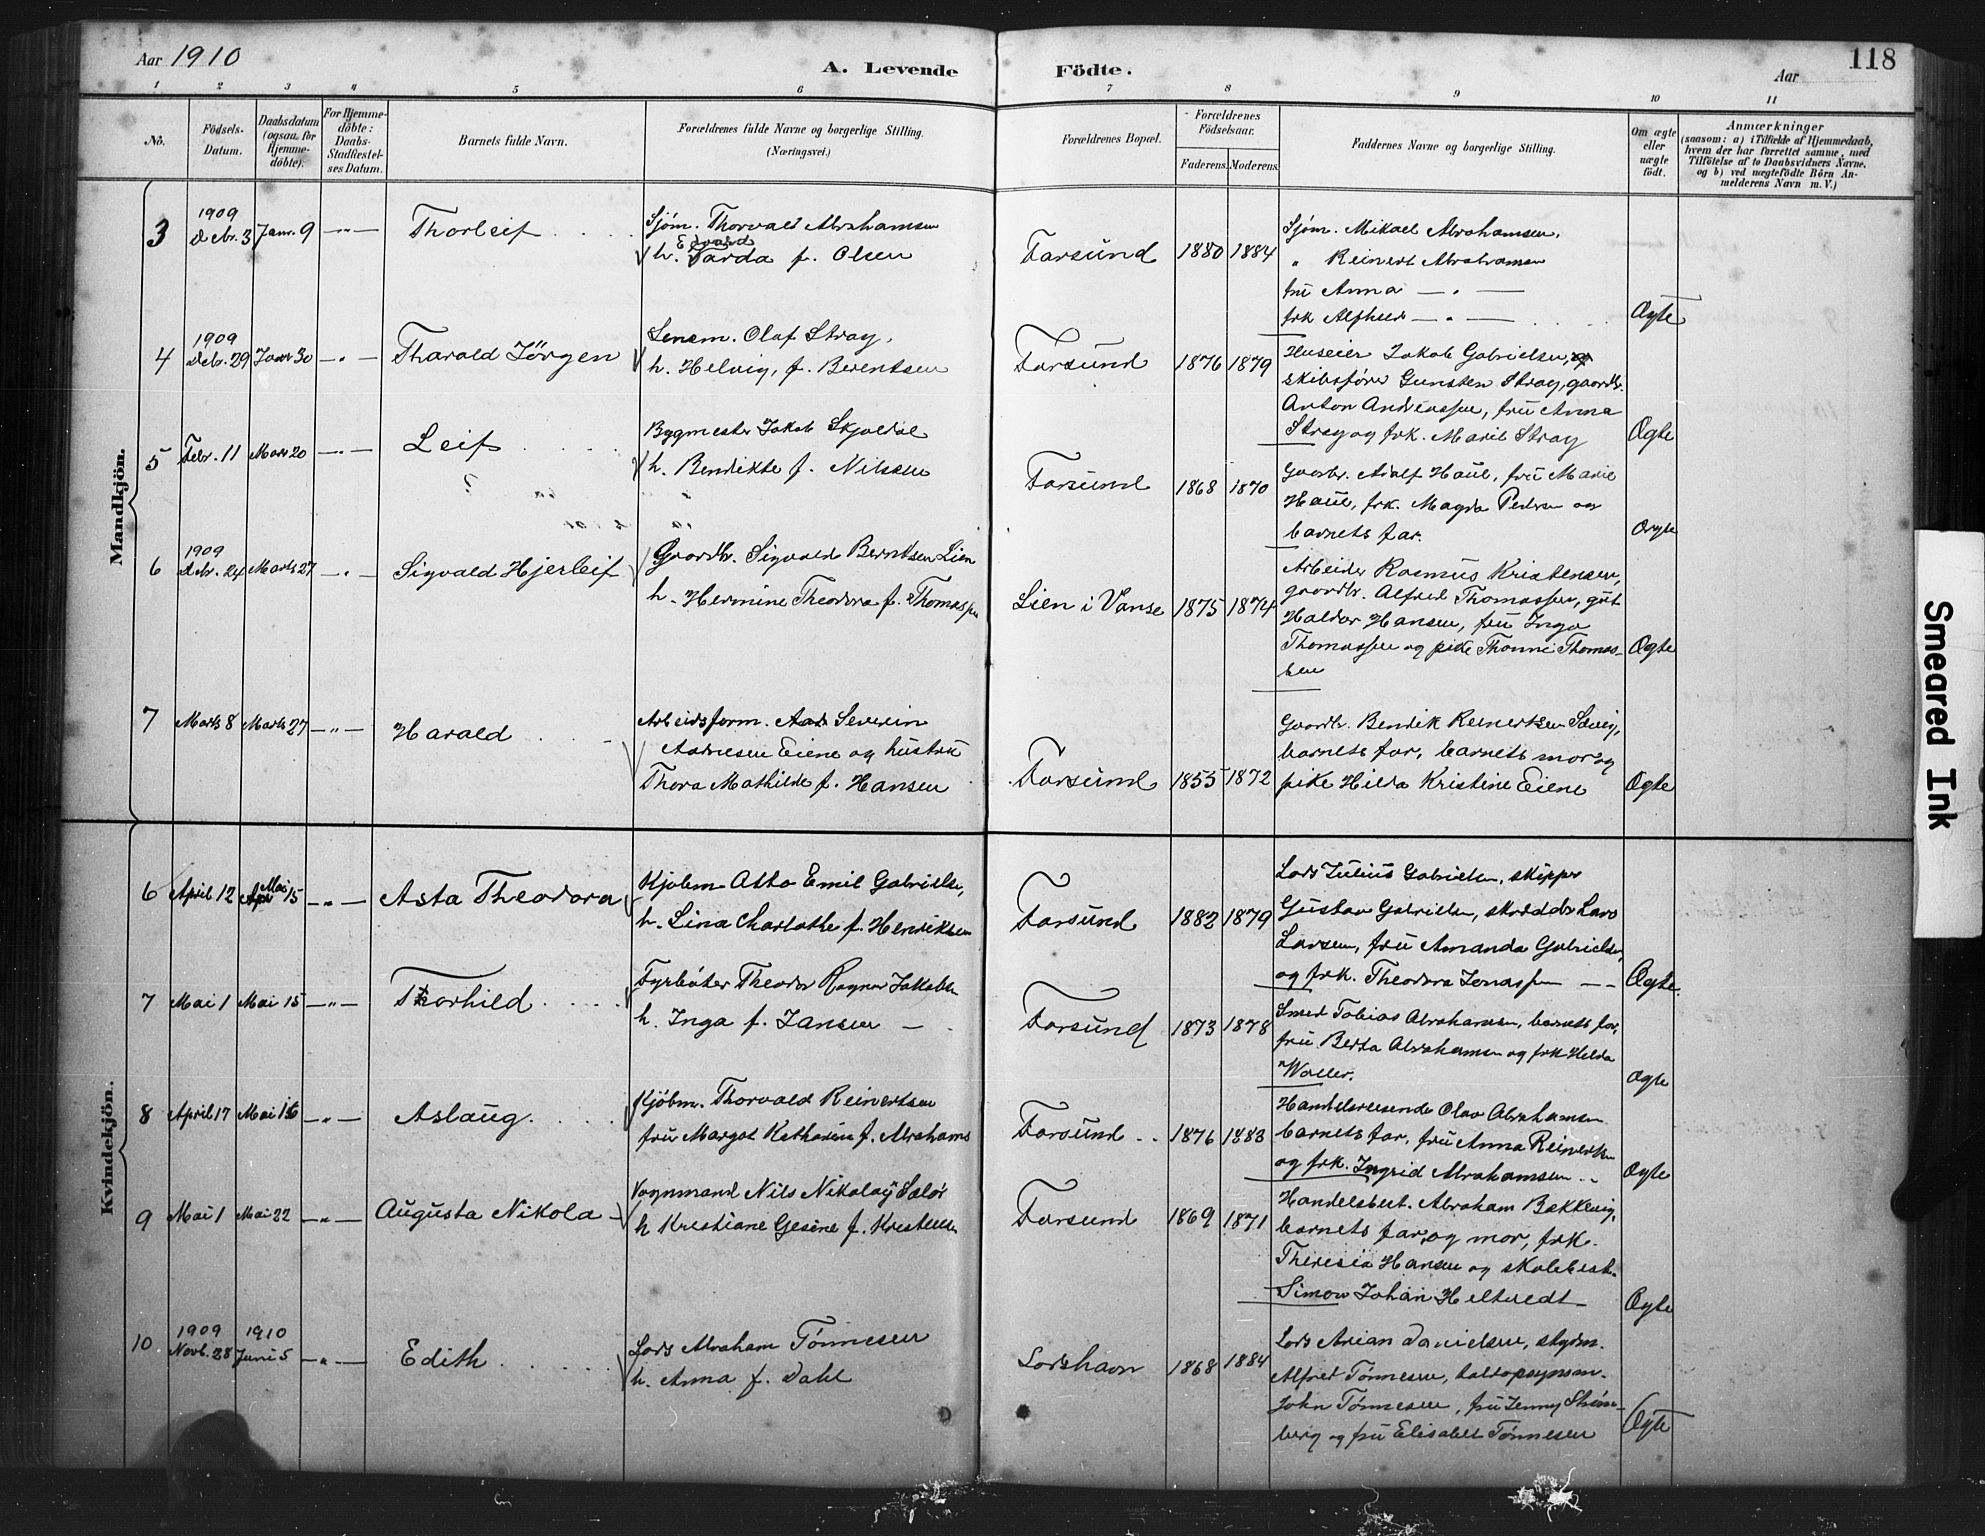 Aar 1910
A. Levende Födte.
Aar
118
1 2 3 4 5 6 7 8 9 10 11
No.
Födsels-
Datum.
Daabsdatum
(ogsaa for
Hjemme-
döbte).
For Hjemme-
döbte:
Daabs-
Stadfæstel-
ses Datum.
Barnets fulde Navn.
Forældrenes fulde Navne og borgerlige Stilling.
(Næringsvei.)
Forældrenes Bopæl.
Forældrenes
Födselsaar.
Faderens. Moderens.
Faddernes Navne og borgerlige Stilling.
Om ægte
eller
uægte
födt.
Anmærkninger
(saasom: a) i Tilfælde af Hjemmedaab,
hvem der har forrettet samme, med
Tilföielse af to Daabsvidners Navne,
og b) ved uægtefödte Börn An-
melderens Navn m. V.)
Mandkjön.
3
1909
Debr. 3
Janr. 9
Thorleif
Sjøm. Thorvald Abrahamsen
h. Edvarda f. Olsen
Farsund
1880 1884
Sjøm. Mikael Abrahamsen,
" Reinert Abrahamsen
fru Anna — " —
frk Alfhild — " —
Ægte
4
1909
Debr. 29
Janr 30
Tharald Jörgen
Olaf Stray,
h. Helvig, f. Berentsen
Farsund
1876 1879
Huseier Jakob Gabrielsen,
skibsfører Gunsten Stray, gaardbr.
Anton Andreassen, fru Anna
Stray og frk. Marie Stray
Ægte
5
Febr. 11
Mars 20
Leif
Bygmester Jakob Skjoldal
h. Bendikte f. Nilsen
Farsund
1868 1870
Gaardbr. Adolf Haul, fru Marie
Haul, frk. Magda Pedersen og
barnets far.
Ægte
6
1909
Debr. 24
Marts 27
Sigvald Hjerleif
Gaardbr. Sigvald Berntsen Lien
h. Hermine Theodora f. Thomassen
Lien i Vanse
1875 1874
Arbeider Rasmus Kristensen,
gaardbr. Alfred Thomassen, gut
Haldor Hansen, fru Inga
Thomassen og pike Thonni Thomas-
sen
Ægte
7
Marts 8
Marts 27
Harald
Arbeidsform. Severin
Aanesen Eiene og hustru
Thora Mathilde f. Hansen
Farsund
1855 1872
Gaardbr. Bendik Reinertsen
barnets far, barnets mor og
pike Hilda Kristine Eiene
Ægte
Kvindekjön.
6
April 12
Mai 15
Asta Theodora
Kjøbm Otto Emil Gabrielse,
h. Lina Charlotte f. Henriksen
Farsund
1882 1879
Lods Julius Gabrielsen, skipper
Gustav Gabrielsen, skrædder Lars
Larsen, fru Amanda Gabrielsen,
og frk. Theodora Jonassen
Ægte.
7
Mai 1
Mai 15
Thorhild
Fyrbøter Theodor Ragnar Jakobsen
h. Inga f. Jansen
Farsund
1873 1878
Smed Tobias Abrahamsen, barnets far,
fru Berta Abrahamsen og frk Hilda
Waller.
Ægte
8
April 17
Mai 16
Aslaug
Kjøbm. Thorvald Reinertsen
fru Margot Katharine f. Abrahams
Farsund
1876 1883
Handelsreisende Olav Abrahamsen
barnets far, fru Anna Reinertsen
og frk. Ingrid Abrahamsen
Ægte
9
Mai 1
Mai 22
Augusta Nikola
Vognmand Nils Nikolay Salör
h Kristiane Gesine f. Kristensen
Farsund
1869 1871
Handelsbest. Abraham Bakkevig,
barnets far og mor, frk.
Theresia Hansen og skolebest.
Simon Johan Heltvedt
Ægte
10
1909
Novb. 28
1910
Juni 5
Edith
Lods Abraham Tønnesen
h. Anna f. Dahl
Lodshavn
1868 1884
Lods Arian Danielsen, styrm.
Alfred Tønnesen, toldopsynsm.
John Tønnesen, fru Jenny Strøm-
berg og fru Elisabet Tønnesen
Ægte
Smeared Ink